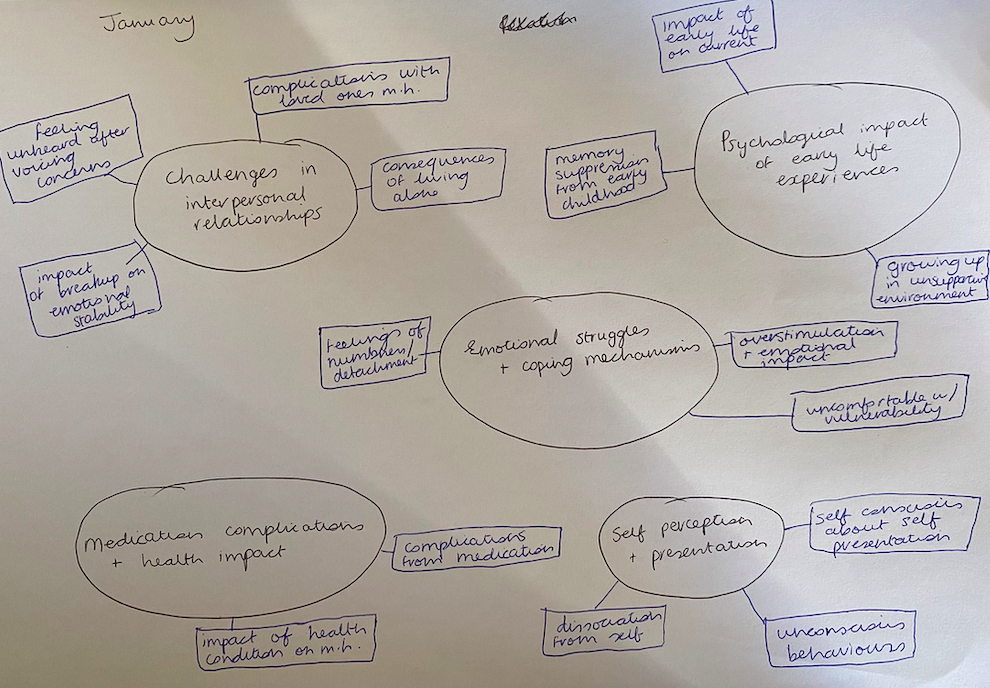 January
impact of
early life
on current
complications with
loved ones m.h.
feeling
unheard after
voicing
concerns
Challenges in
interpersonal
relationships
consequences
of living
alone
impact
of breakup on
emotional
stability
memory
suppression
from early
childhood
Psychological impact
of early life
experiences
growing up
in unsupportive
environment
Feelings of
numbness/
detachment
Emotional struggles
+ coping mechanisms
overstimulation
+ emotional
impact
uncomfortable w/
vulnerability
Medication complications
+ health impact
complications
from medication
impact of health
condition on m.h.
Self perception
+ presentation
Self conscious
about self
presentation
dissociation
from self
unconscious
behaviours